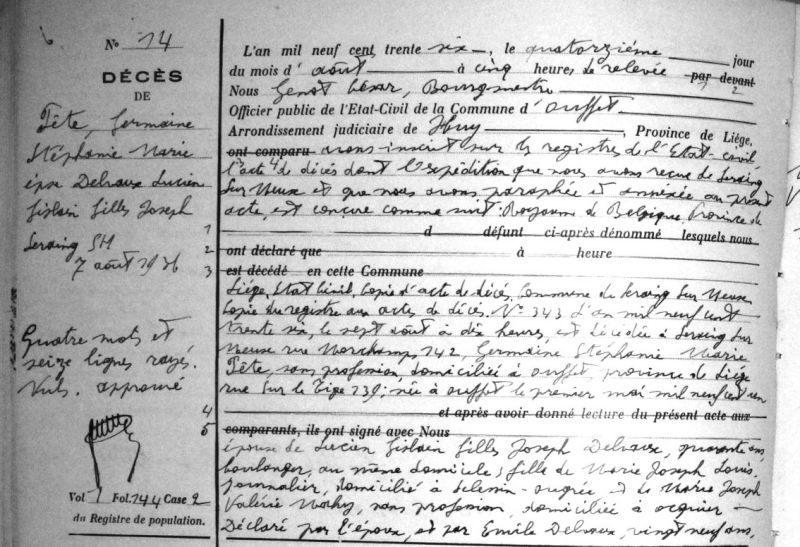 No 14
DÉCÈS
DE
Tête, Germaine
Stéphanie Marie
épse Delvaux Lucien
Gislain Gilles Joseph
Seraing SM
7 août 1936
1
2
3
Quatre mots et
seize lignes rayés.
Nuls. approuvé
4
5
Vol 1 Fol. 144 Case 2
du Registre de population.
L'an mil neuf cent trente six, le quatorzième jour
du mois d' août à cinq heures de relevée par devant
Nous Genot César, Bourgmestre
Officier public de l'Etat-Civil de la Commune d' Ouffet
Arrondissement judiciaire de Huy, Province de Liége,
ont comparu avons inscrit sur les registres de l'Etat-civil
l'acte de décès dont l'expédition que nous avons reçue de Seraing
Sur Meuse et que nous avons paraphée et annexée au présent
acte, est conçue comme suit: Royaume de Belgique Province de
d défunt ci-après dénommé lesquels nous
ont déclaré que à heure
est décédé en cette Commune
Liége, Etat Civil, Copie d'acte de décès, Commune de Seraing Sur Meuse
Copie du registre aux actes de décès. No 343 d'an mil neuf cent
trente six, le sept août à dix heures, est décédée à Seraing Sur
Meuse rue Morchamps 242, Germaine Stéphanie Marie
Tête, sans profession, domiciliée à Ouffet, province de Liége
rue Sur le Tige 239; née à Ouffet le premier mai mil neuf cent un
et après avoir donné lecture du présent acte aux
comparants, ils ont signé avec Nous
épouse de Lucien Gislain Gilles Joseph Delvaux, quarante ans,
boulanger, au même domicile; fille de Marie Joseph Louis,
journalier, domicilié à Sclessin-Ougrée, et de Marie Joseph
Valérie, sans profession, domiciliée à
Déclaré par l'époux, et par Emile Delvaux, vingt neuf ans,